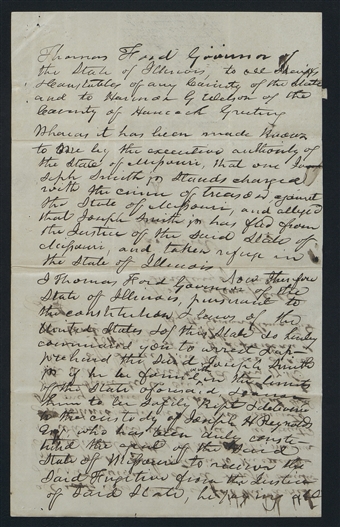 Thomas Ford Governor of
the State of Illinois, to all Sheriffs
& Constables of any County of the State
and to Harmon G Wilson of the
County of Hancock Greeting
Whereas it has been made known
to me by the executive authority of
the State of Missouri, that one Jo
seph Smith jr Stands charged
with the crime of treason against
the State of Missouri, and alleged
that Joseph Smith jr has fled from
the Justice of the Said State of
Missouri, and taken refuge in
the State of Illinois
Now therefore
I Thomas Ford Governor of the
State of Illinois, pursuant to
the constitution & laws of the
United States & of this State do hereby
command you to arrest & ap-
prehend the Said Joseph Smith
jr if he be found in the limits
of the State aforesaid,
him to be Safely Kept & delivered
to the custody of Joseph H Reynolds
Esqr who has been duly consti-
tuted the agent of the Said
State of Missouri to receive the
Said fugitive from the Justice
of Said State, he paying all